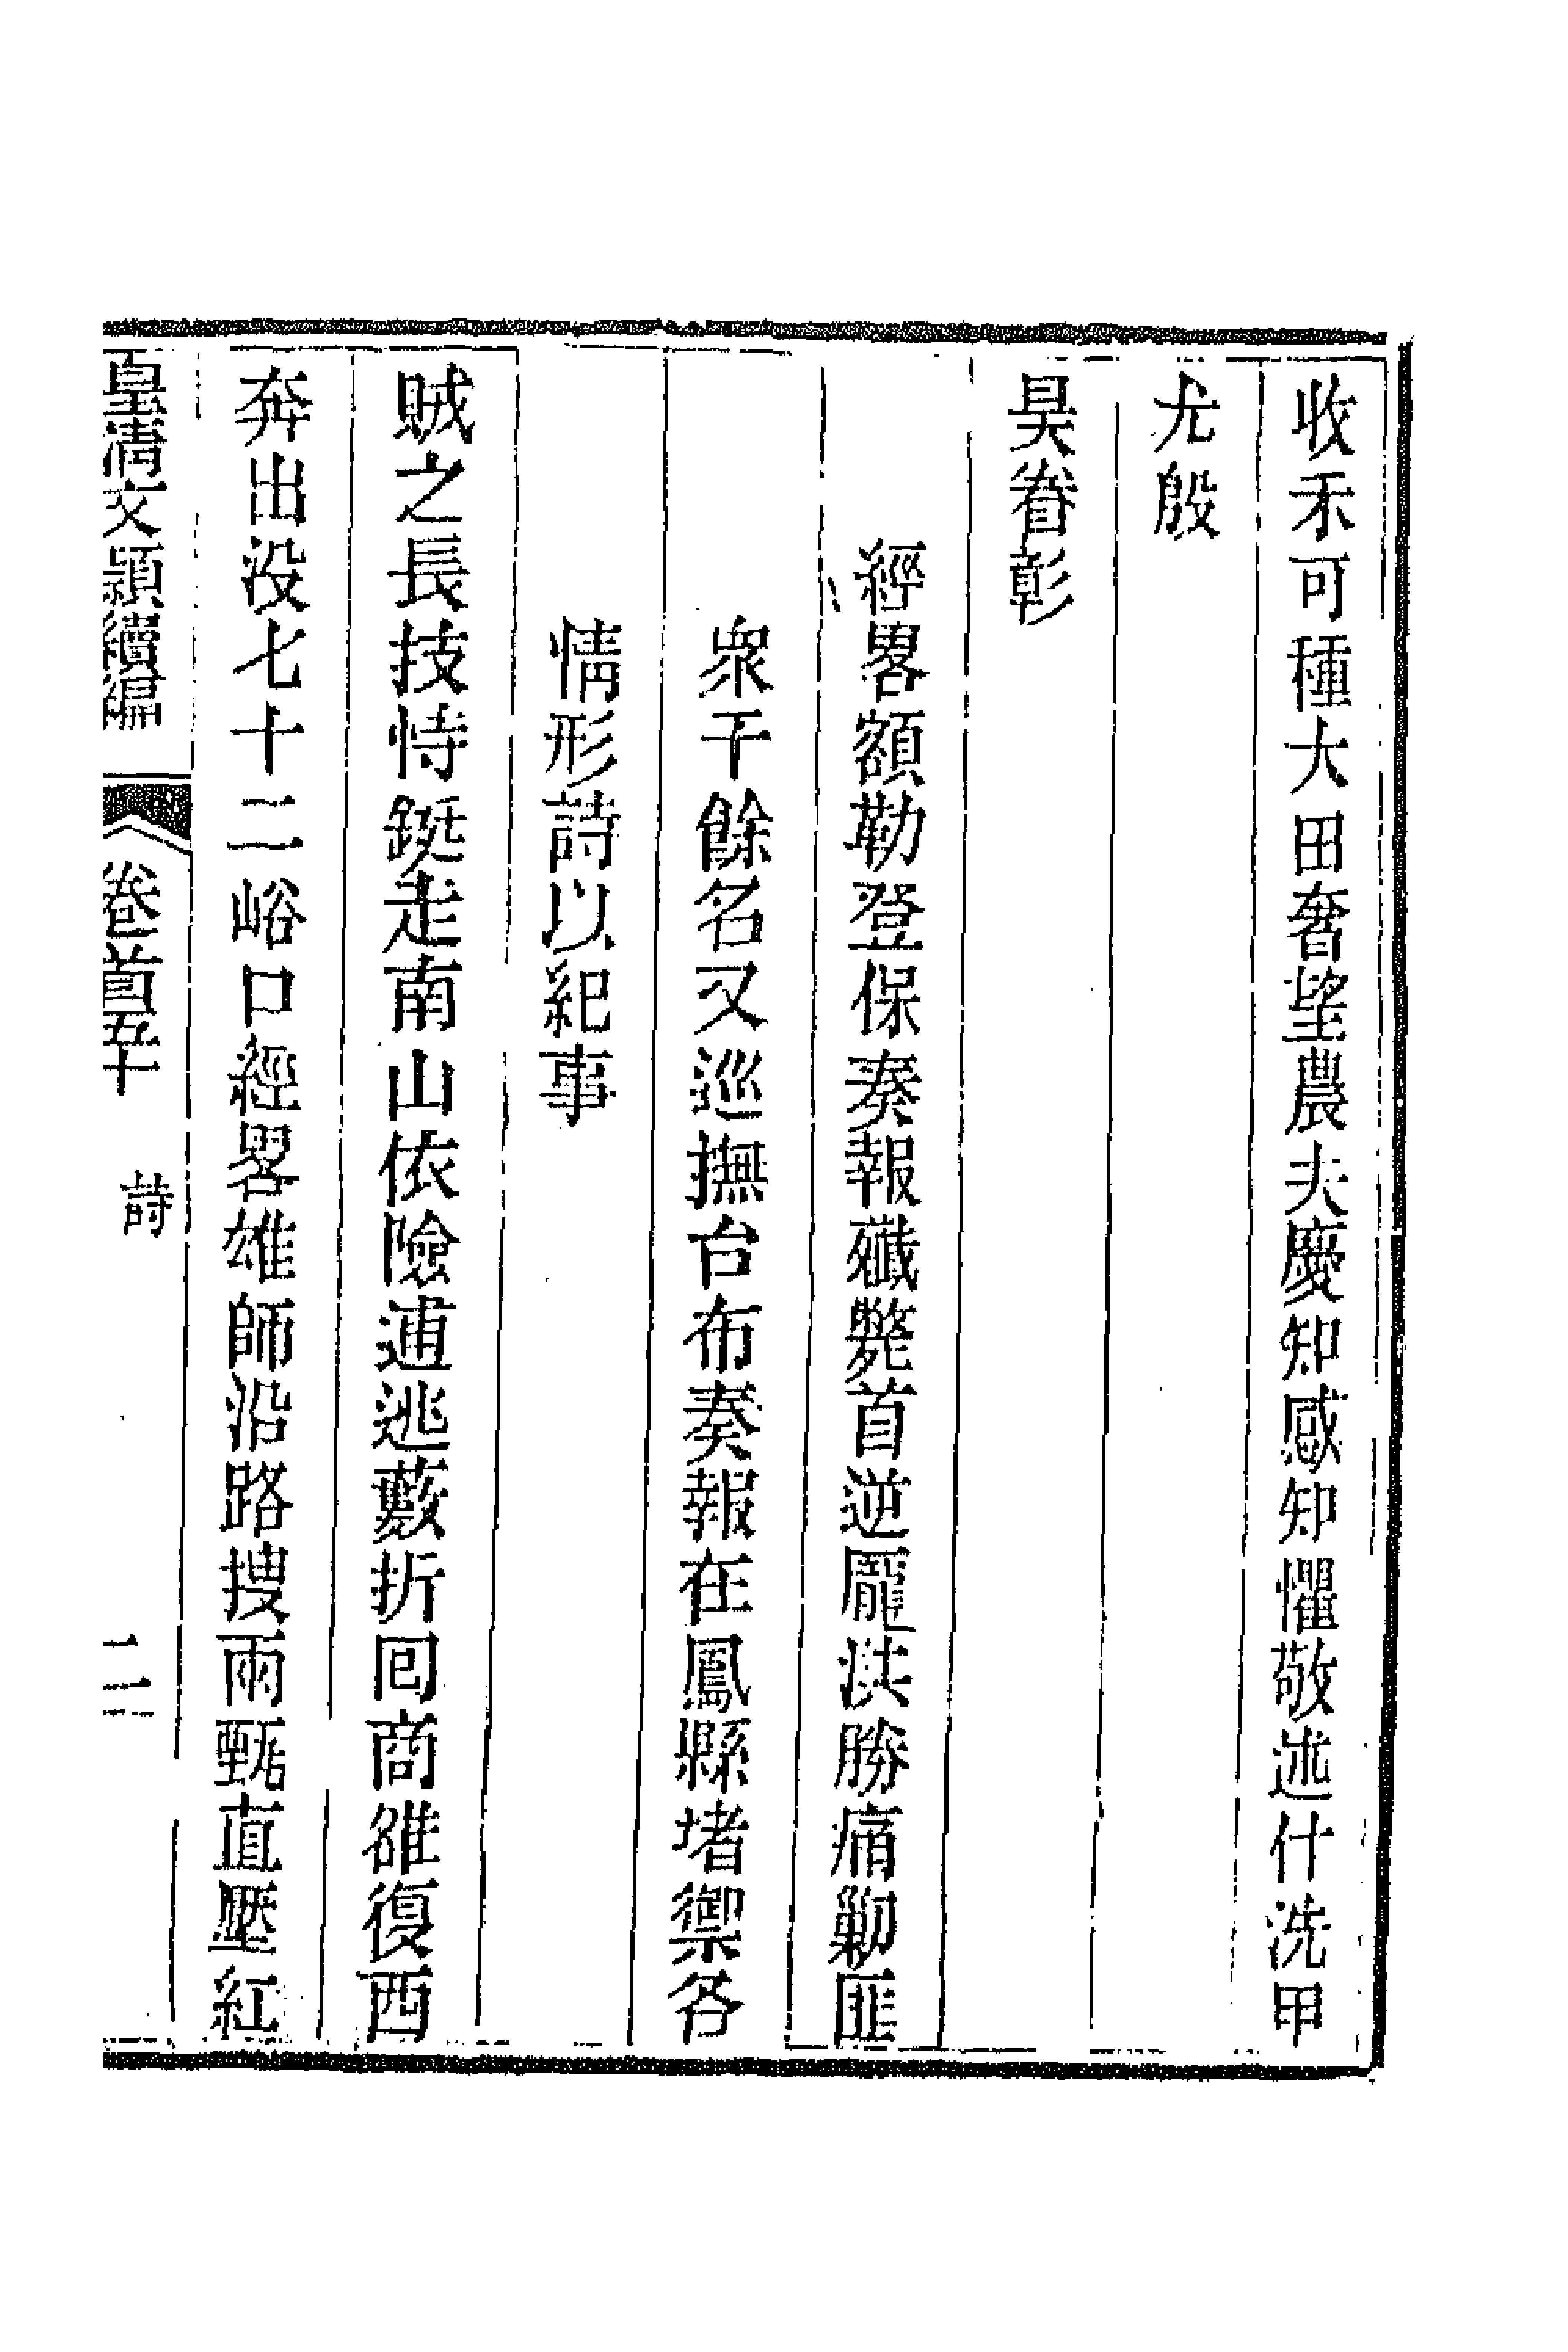 收禾可種大田奢望農夫慶知感知懼敬述什洗甲
尤殷
昊眷彰
經畧額勒登保奏報殲斃首逆龐洪勝痛勦匪
衆千餘名又巡撫台布奏報在鳳縣堵禦各
情形詩以紀事
賊之長技恃鋌走南山依險逋逃藪折回商雒復西
奔出没七十二峪口經畧雄師沿路搜兩甄直壓紅
皇清文穎續編 卷首五十 詩